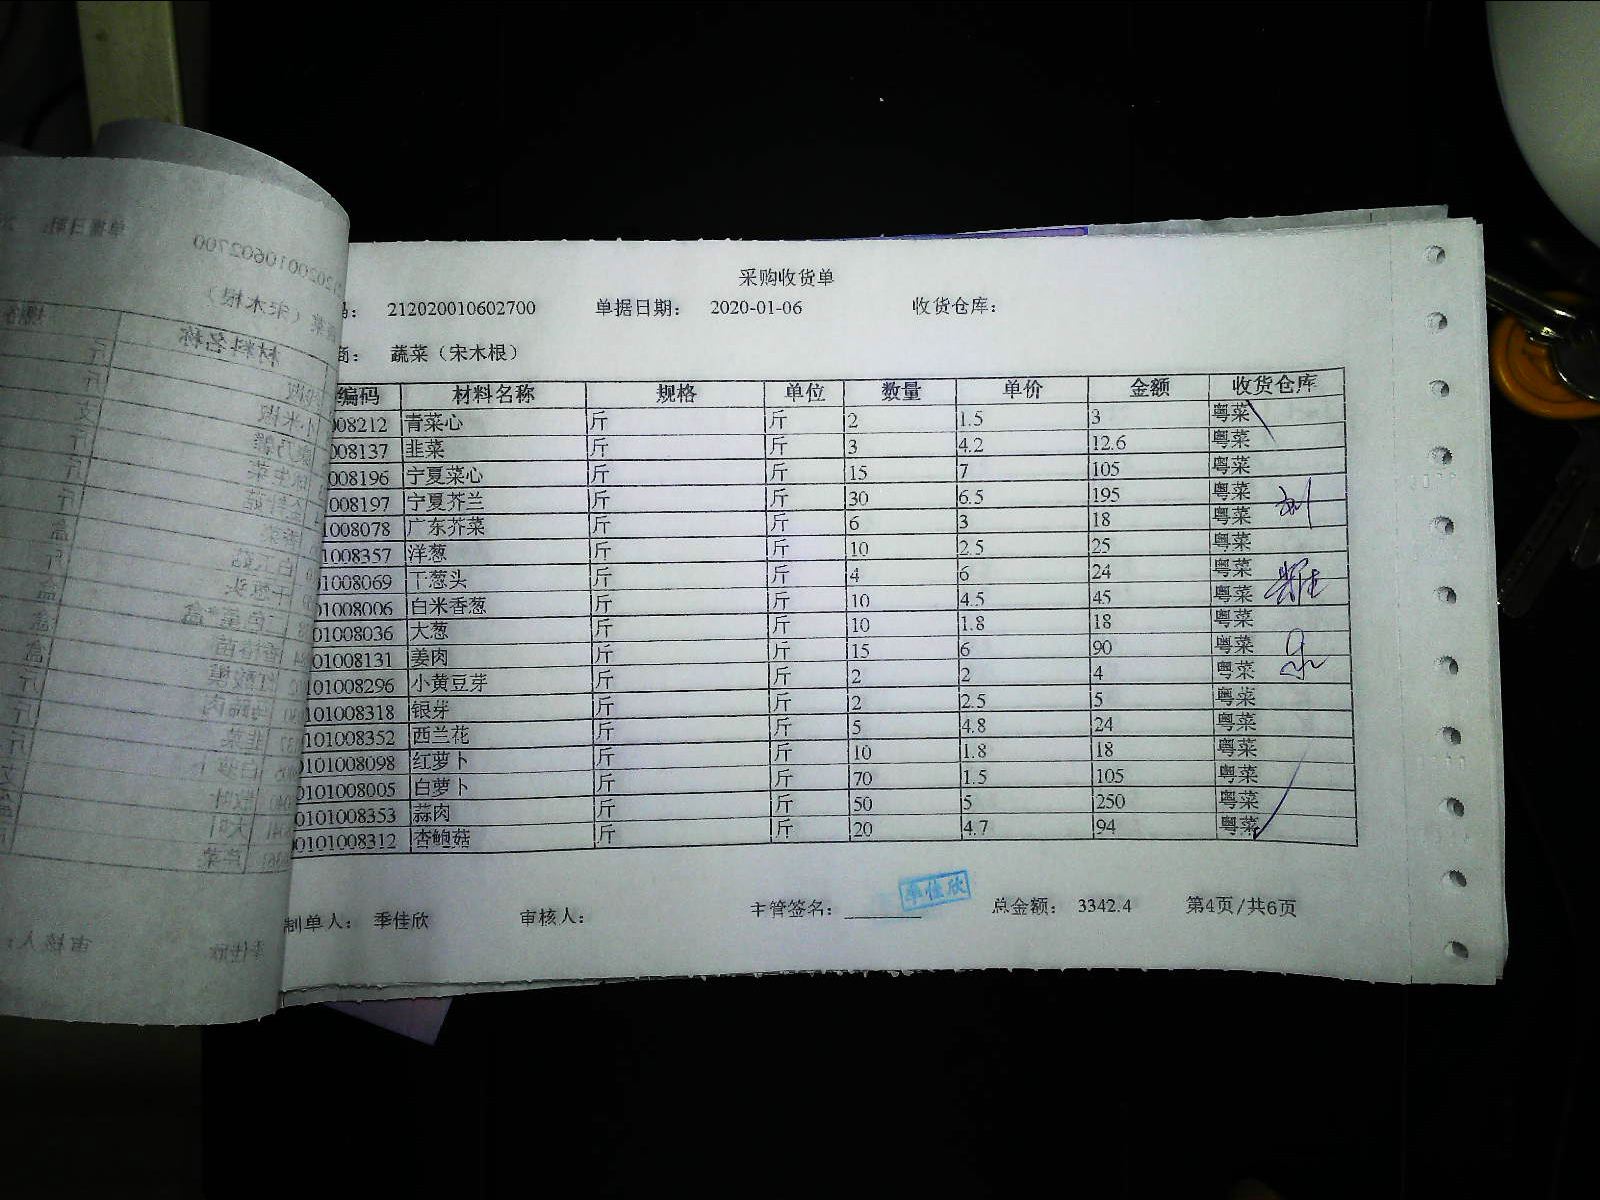 采购收货单
212020010602700 单据日期： 2020-01-06 收货仓库：
商： 蔬菜（宋木根）
编码 材料名称 规格 单位 数量 单价 金额 收货仓库
008212 青菜心 斤 斤 2 1.5 3 粤菜
008137 韭菜 斤 斤 3 4.2 12.6 粤菜
008196 宁夏菜心 斤 斤 15 7 105 粤菜
008197 宁夏芥兰 斤 斤 30 6.5 195 粤菜
1008078 广东芥菜 斤 斤 6 3 18 粤菜
1008357 洋葱 斤 斤 10 2.5 25 粤菜
1008069 干葱头 斤 斤 4 6 24 粤菜
01008006 白米香葱 斤 斤 10 4.5 45 粤菜
01008036 大葱 斤 斤 10 1.8 18 粤菜
01008131 姜肉 斤 斤 15 6 90 粤菜
101008296 小黄豆芽 斤 斤 2 2 4 粤菜
101008318 银芽 斤 斤 2 2.5 5 粤菜
101008352 西兰花 斤 斤 5 4.8 24 粤菜
0101008098 红萝卜 斤 斤 10 1.8 18 粤菜
0101008005 白萝卜 斤 斤 70 1.5 105 粤菜
0101008353 蒜肉 斤 斤 50 5 250 粤菜
00101008312 杏鲍菇 斤 斤 20 4.7 94 粤菜
季佳欣
制单人： 季佳欣 审核人： 主管签名： 总金额： 3342.4 第4页/共6页